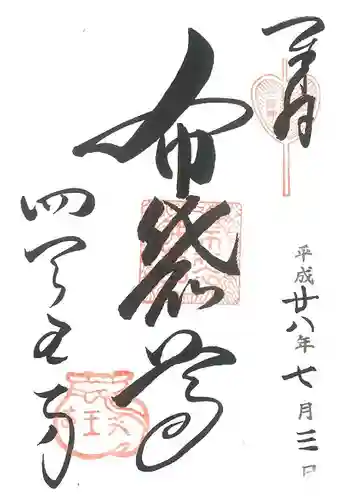 奉拝
平成廿八年七月三日
布袋尊
四天王寺